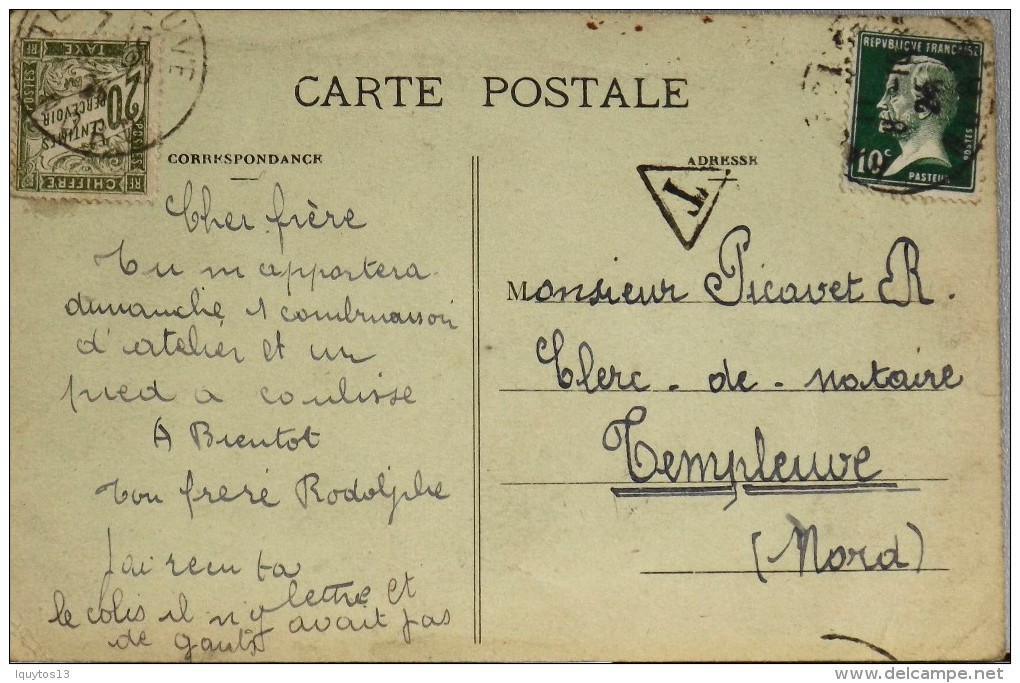 CARTE POSTALE
CORRESPONDANCE
Cher frère
Tu m apportera
dimanche 1 combinaison
d'atelier et un
pied a coulisse
A Bientot
Ton frere Rodolphe
J'ai recu ta
lettre et
le colis il n y avait pas
de gants
ADRESSE
T
Monsieur Picavet R.
Clerc - de - notaire
Templeuve
(Nord)
REPUBLIQUE FRANÇAISE
10c
POSTES
PASTEUR
TAXE
20
CENTIMES
A PERCEVOIR
POSTES
CHIFFRE
RF
lquytos13
www.delcampe.net